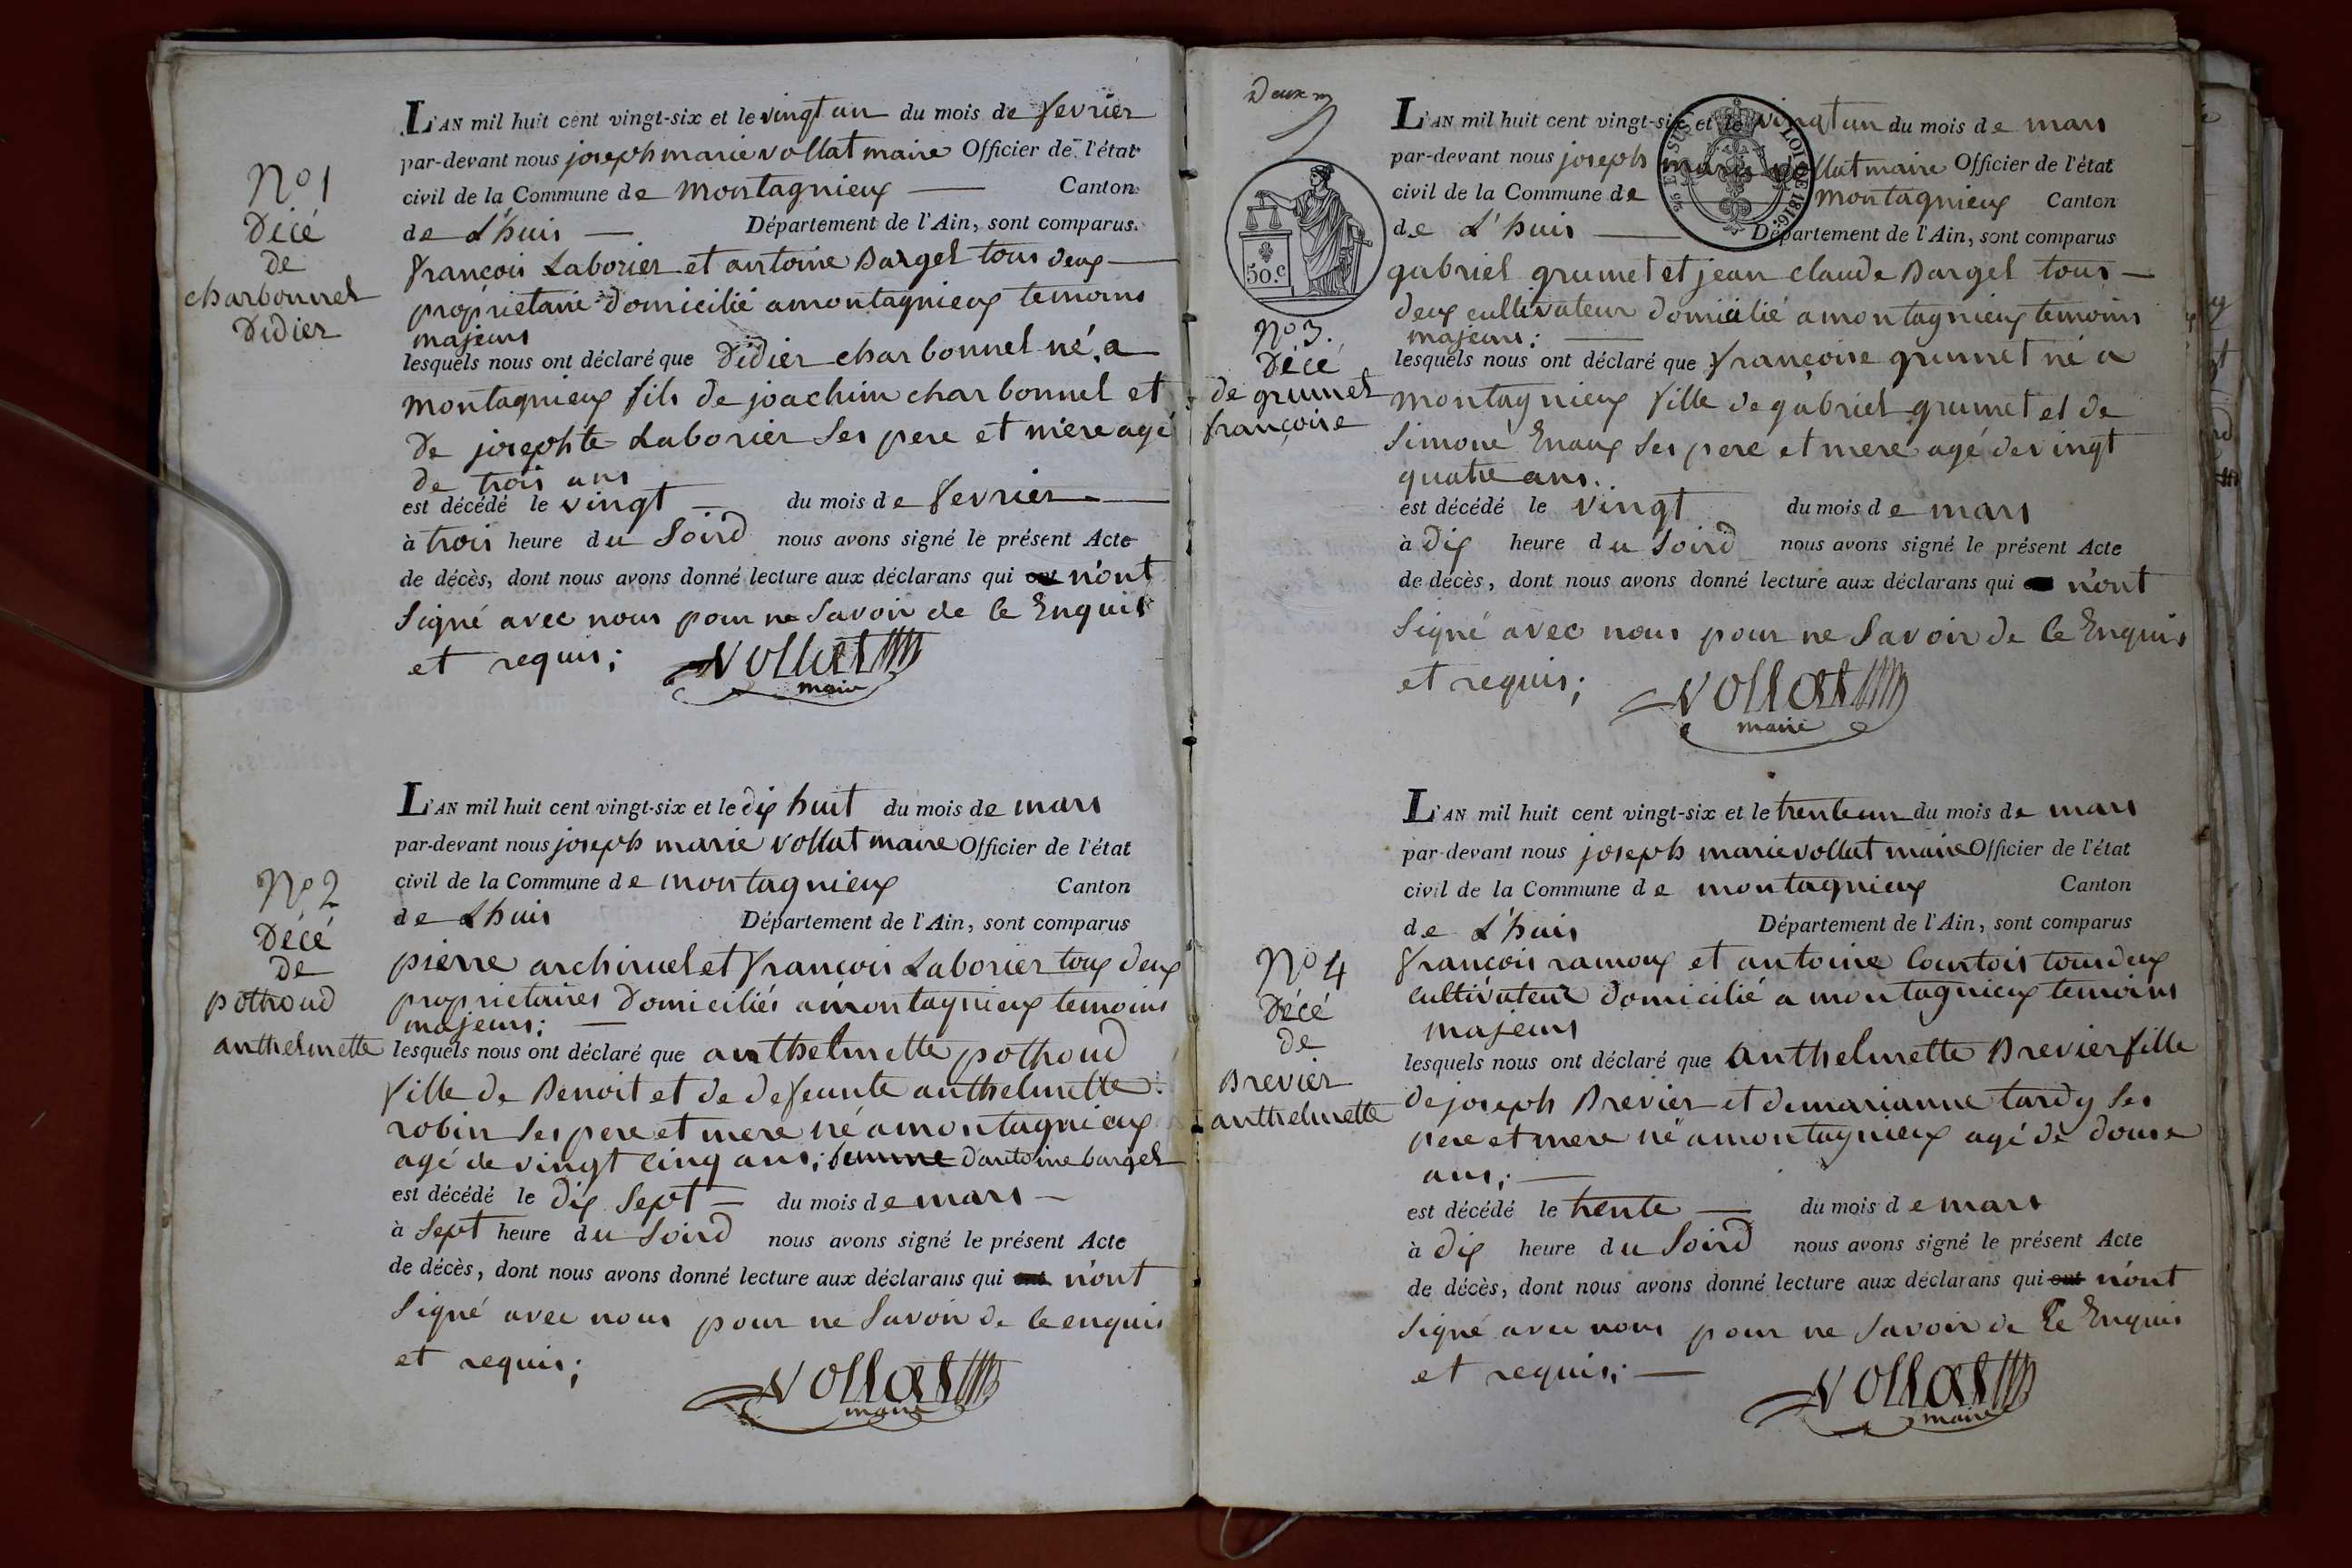 N° 1
Décé
de
charbonnel
Didier
L'AN mil huit cent vingt-six et le vingt un du mois de fevrier
par-devant nous joseph marie vollat maire Officier de l'état
civil de la Commune de montagnieux Canton
de L'huis Département de l'Ain, sont comparus.
françois Laborier et antoine Bargel tous deux
propriétaire domicilié a montagnieux temoins
majeurs
lesquels nous ont déclaré que Didier charbonnel né a
montagnieux fils de joachim charbonnel et
de josephte Laborier ses pere et mere agé
de trois ans
est décédé le vingt du mois de fevrier
à trois heure du Soird nous avons signé le présent Acte
de décès, dont nous avons donné lecture aux déclarans qui ont n'ont
Signé avec nous pour ne Savoir de ce Enquis
et requis;
vollat
maire
N° 2
Décé
de
pothoud
anthelmette
L'AN mil huit cent vingt-six et le dix huit du mois de mars
par-devant nous joseph marie vollat maire Officier de l'état
civil de la Commune de montagnieux Canton
de Lhuis Département de l'Ain, sont comparus
pierre archiruel et françois Laborier toux deux
proprietaires Domiciliés a montagnieux temoins
majeurs;
lesquels nous ont déclaré que anthelmette pothoud
fille de Benoit et de defeunte anthelmette
robin ses pere et mere né a montagnieux
agé de vingt cinq ans; femme d'antoine bargel
est décédé le dix sept du mois de mars
à Sept heure du Soird nous avons signé le présent Acte
de décès, dont nous avons donné lecture aux déclarans qui ont n'ont
Signé avec nous pour ne Savoir de ce enquis
et requis;
vollat
maire
Deux
50.c
LOI DE 1816.
N° 3.
Décé
de grumet
françoise
L'AN mil huit cent vingt-six et le vingt un du mois de mars
par-devant nous joseph marie vollat maire Officier de l'état
civil de la Commune de montagnieux Canton
de L'huis Département de l'Ain, sont comparus
gabriel grumet et jean claude Bargel tous
deux cultivateur domicilié a montagnieux temoins
majeurs;
lesquels nous ont déclaré que françoise grumet né a
montagnieux fille de gabriel grumet et de
Simone Enaux ses pere et mere agé de vingt
quatre ans.
est décédé le vingt du mois de mars
à dix heure du Soird nous avons signé le présent Acte
de décès, dont nous avons donné lecture aux déclarans qui n'ont
Signé avec nous pour ne Savoir de ce Enquis
et requis;
vollat
maire
N° 4
Décé
de
Brevier
anthelmette
L'AN mil huit cent vingt-six et le trente un du mois de mars
par-devant nous joseph marie vollat maire Officier de l'état
civil de la Commune de montagnieux Canton
de L'huis Département de l'Ain, sont comparus
françois ramoux et antoine Courtois tous deux
cultivateur domicilié a montagnieux temoins
majeurs
lesquels nous ont déclaré que anthelmette Brevier fille
de joseph Brevier et de marianne tardy ses
pere et mere né a montagnieux agé de douse
ans;
est décédé le trente du mois de mars
à dix heure du Soird nous avons signé le présent Acte
de décès, dont nous avons donné lecture aux déclarans qui ont n'ont
Signé avec nous pour ne Savoir de Ce Enquis
et requis;
vollat
maire